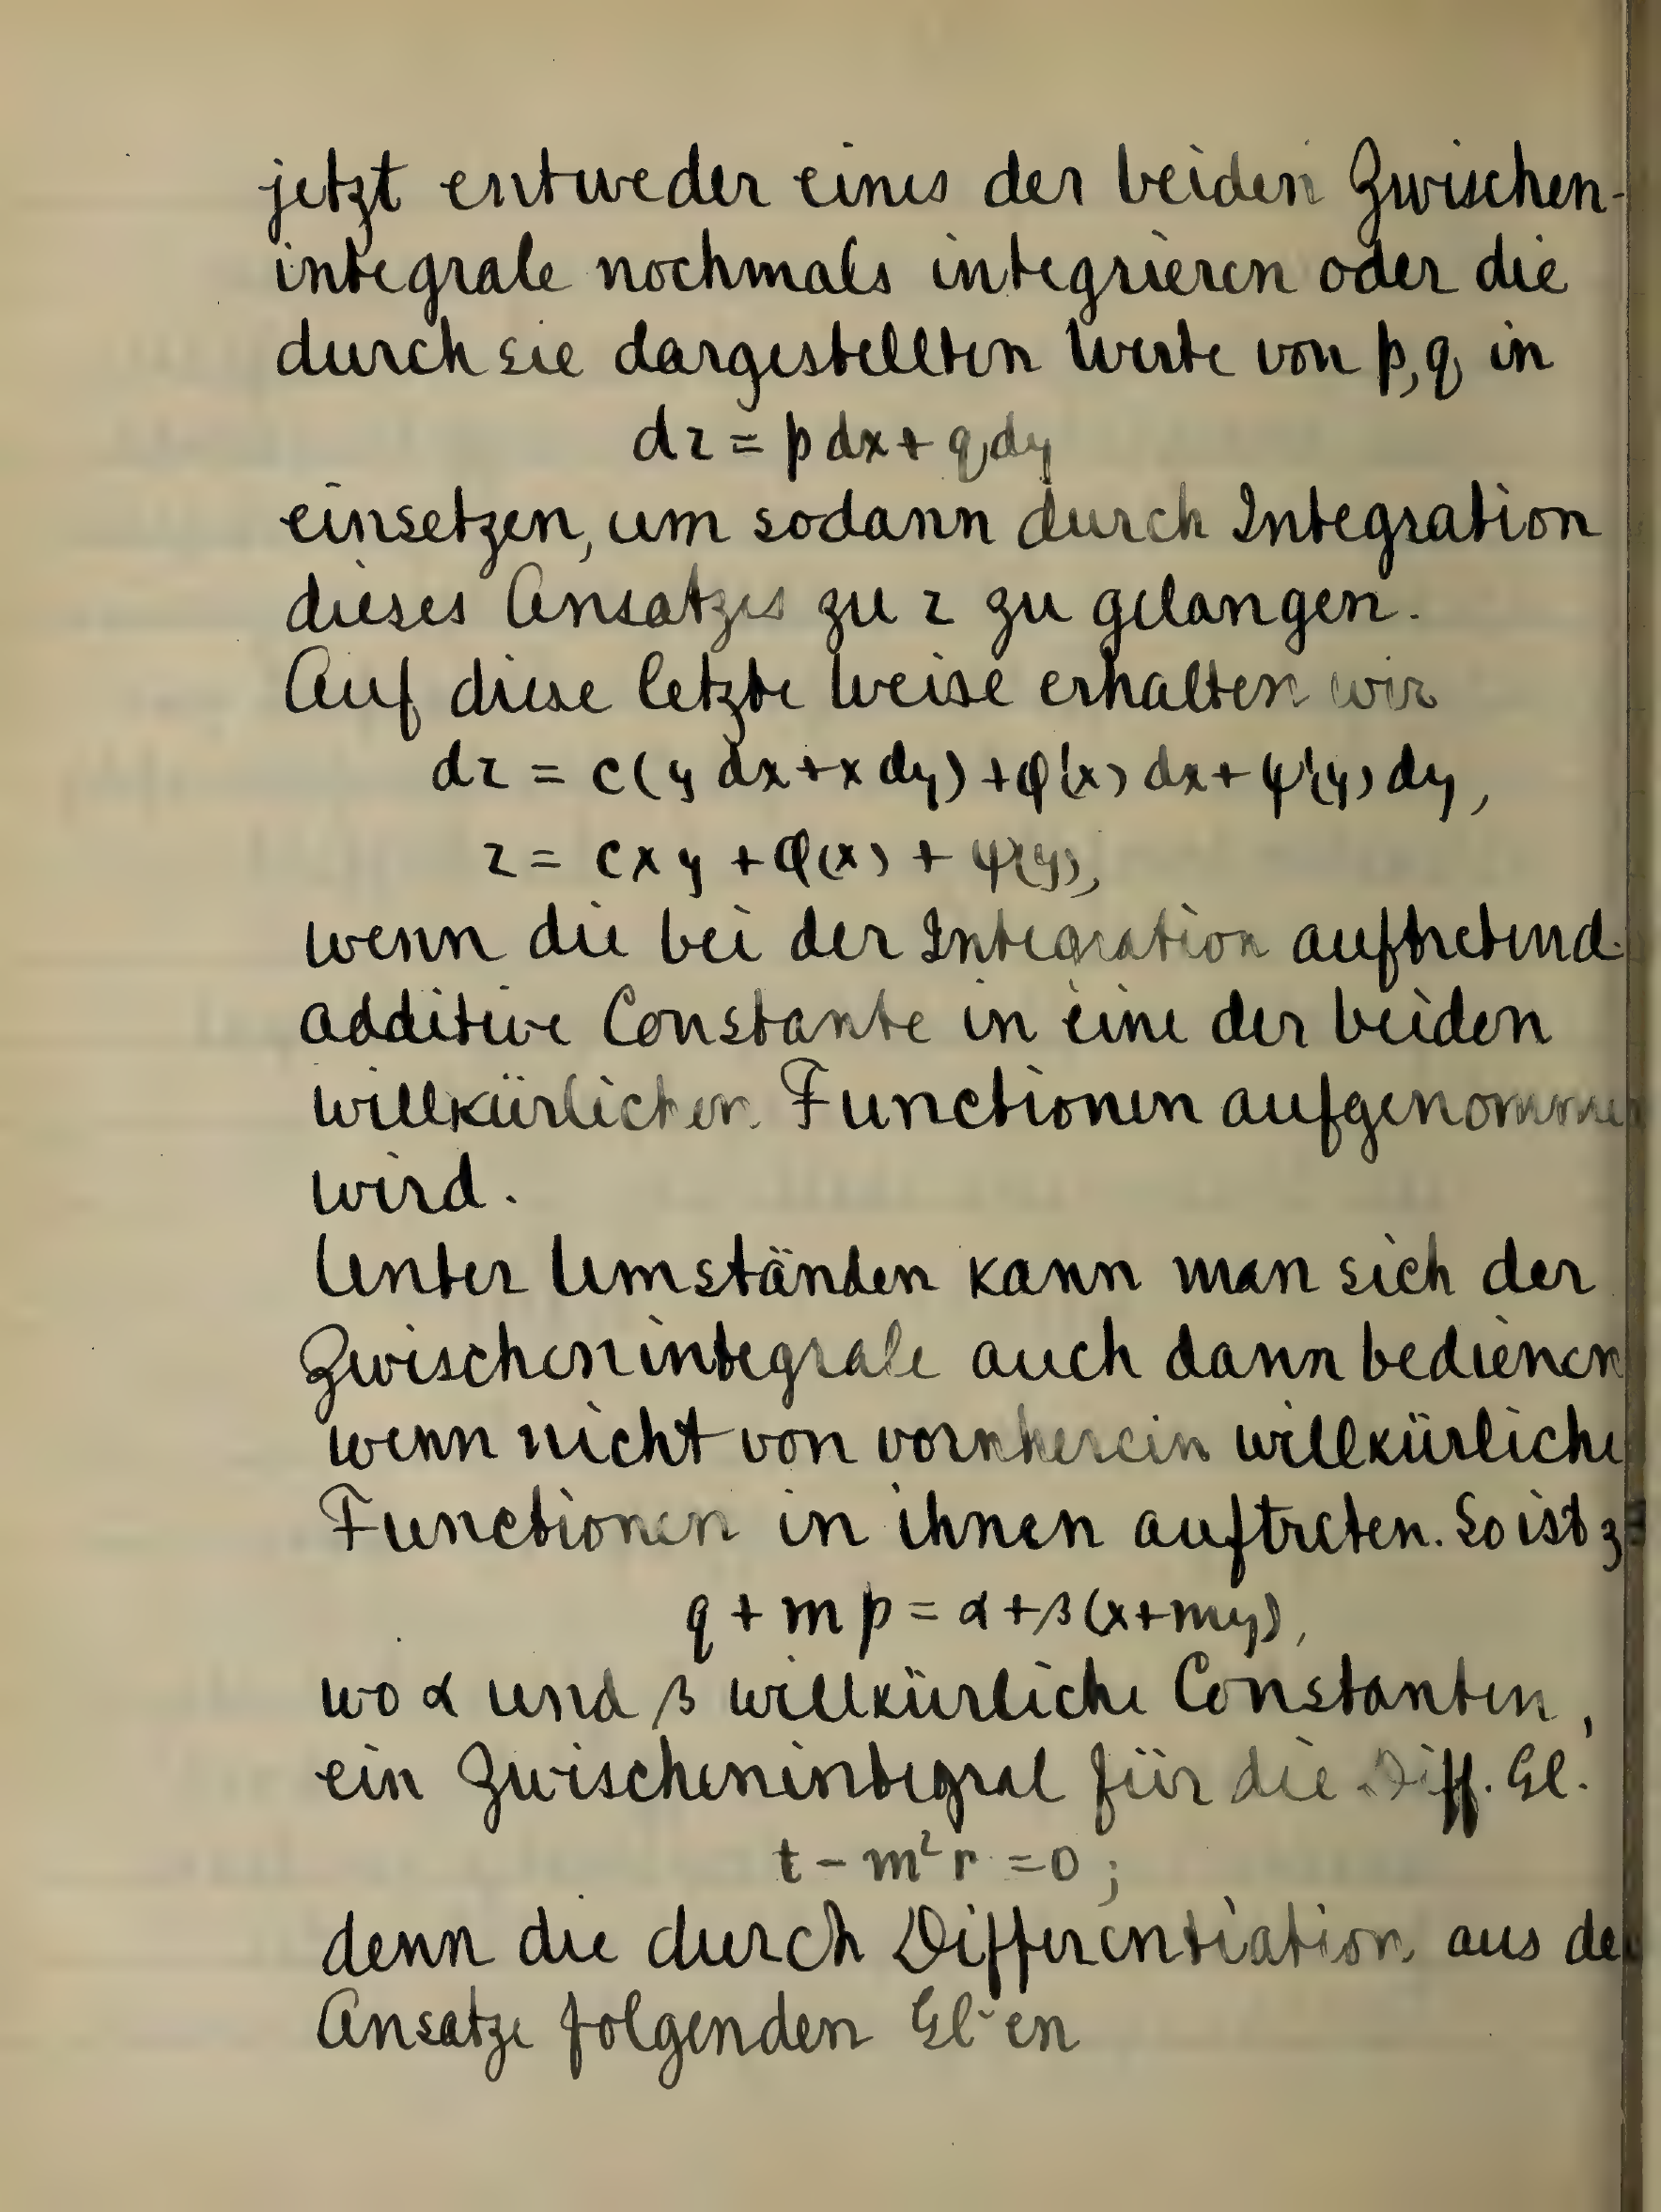 jetzt entweder eines der beiden Zwischen-
integrale nochmals integrieren oder die
durch sie dargestellten Werte von p, q in
dz = p dx + q dy
einsetzen, um sodann durch Integration
dieses Ansatzes zu z zu gelangen.
Auf diese letzte Weise erhalten wir
dz = c(y dx + x dy) + φ'(x) dx + ψ'(y) dy,
z = cxy + φ(x) + ψ(y),
wenn die bei der Integration auftretend.
additive Constante in eine der beiden
willkürlichen Functionen aufgenommen
wird.
Unter Umständen kann man sich der
Zwischenintegrale auch dann bedienen
wenn nicht von vornherein willkürliche
Functionen in ihnen auftreten. So ist z
q + mp = α + β(x + my),
wo α und β willkürliche Constanten,
ein Zwischenintegral für die Diff. Gl.
t - m²r = 0;
denn die durch Differentiation aus de
Ansatze folgenden Gl-en